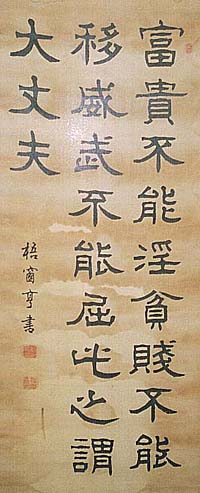 富貴不能淫貧賤不能
移威武不能屈此之謂
大丈夫
梧窗亨書